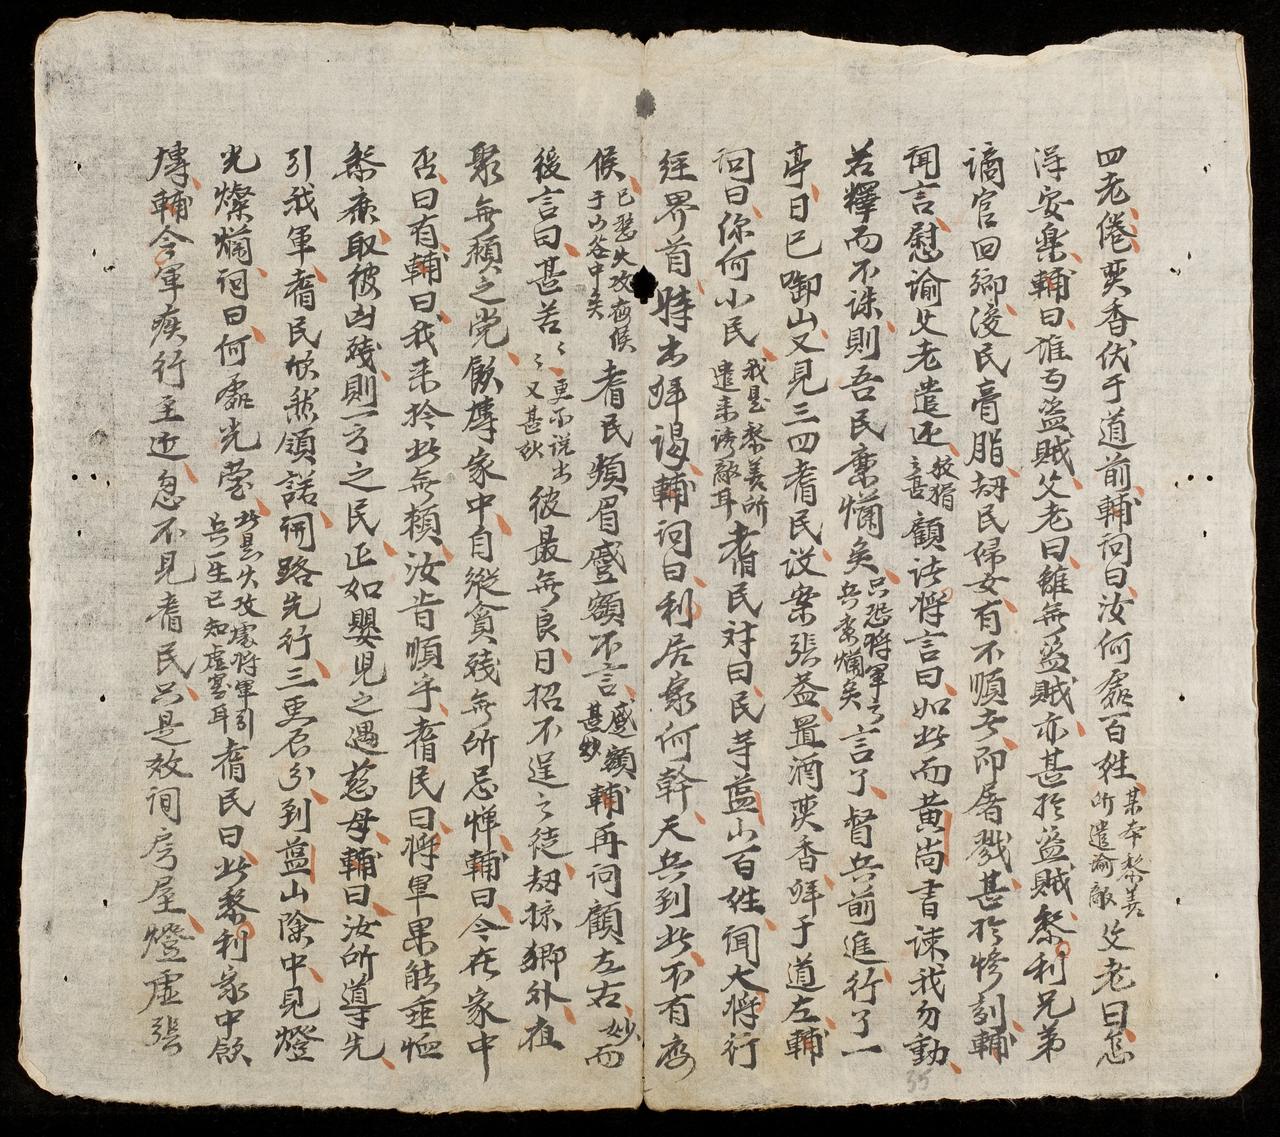 四老倦奠香伏于道前輔问曰汝何處百姓某本黎善所遣諭敵父老曰怎
得安樂輔曰谁为盗賊父老曰雖無盗賊亦甚於盗賊黎利兄弟
謫官回鄉浚民膏脂刼民婦女有不順者即屠戮甚於惨刻輔
闻言慰谕父老遣还狡猾之甚顧诸将言曰如此而黄尚書諫我勿動
若釋而不誅則吾民糜爛矣只恐将軍之兵糜爛矣言了督兵前進行了一
亭日已啣山又見三四耆民设案張盖置酒奠香拜于道左輔
问曰你何小民我是黎善所遣来诱敵耳耆民对曰民等藍山百姓闻大将行
经界首特出拜谒輔问曰利居家何幹天兵到此不有劳
候已整失攻府候于山谷中矣耆民頻眉蹙額不言蹙額甚妙輔再问顧左右妙而
後言曰甚苦〻更不说出〻又甚妙彼最無良日招不逞之徒刼掠鄉外夜
聚無頼之党飲博家中自縱貪殘無所忌惮輔曰今在家中
否曰有輔曰我来於此無頼汝肯順乎耆民曰将軍果能垂恤
黎庶取彼凶殘則一方之民正如嬰児之遇慈母輔曰汝所導先
引我軍耆民欣然領諾開路先行三更后分到藍山隘中見燈
光燦爛问曰何處光莹此是火攻處将軍引兵一生已知虚寔耳耆民曰此黎利家中飲
博輔令軍疾行至近忽不見耆民只是放洞房屋燈虚張